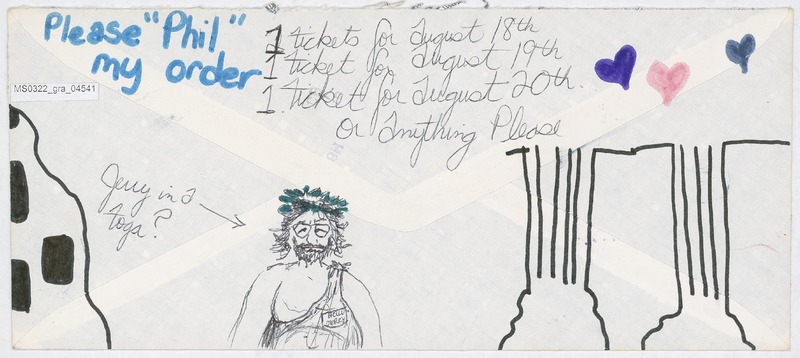 Please "Phil"
my order
1 tickets for August 18th
1 ticket for August 19th
1 Ticket for August 20th.
Or Anything Please
MS0322_gra_04541
Jerry in a
toga?
HELLO
JERRY